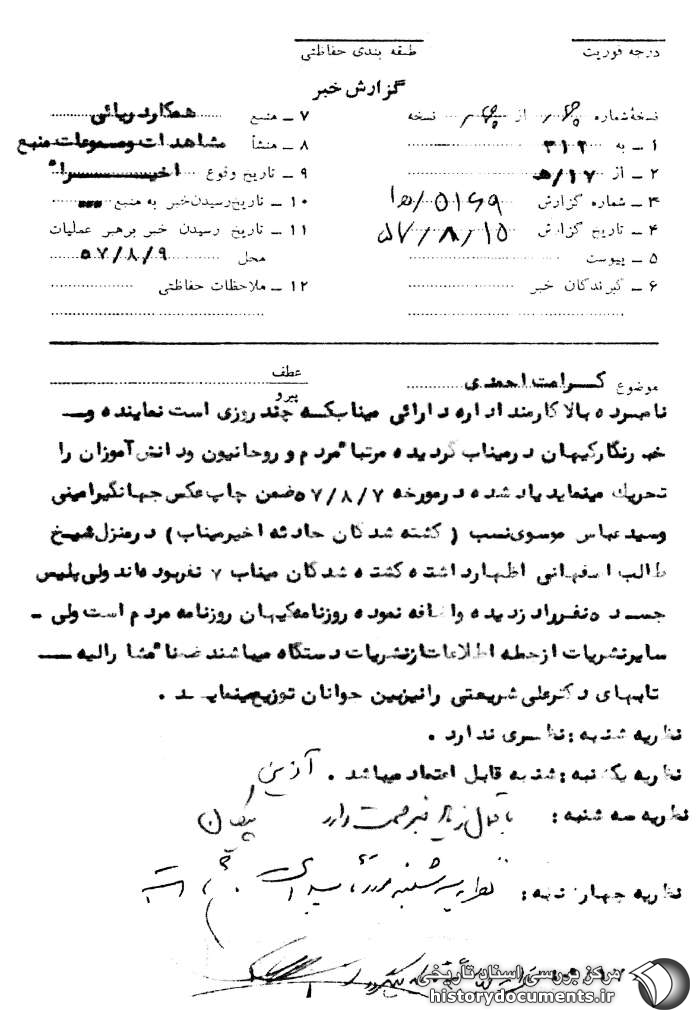 درجه فوریت
طبقه بندی حفاظتی
گزارش خبر
نسخه شماره از نسخه
۱ ـ به ۳۱۲
۲ ـ از ۱۷/ﻫ
۳ ـ شماره گزارش
۴ ـ تاریخ گزارش ۵۷/۸/۱۵
۵ ـ پیوست
۶ ـ گیرندگان خبر
۷ ـ منبع همکار دریائی
۸ ـ منشأ مشاهدات ومسموعات منبع
۹ ـ تاریخ وقوع اخیرا"
۱۰ ـ تاریخ رسیدن خبر به منبع
۱۱ ـ تاریخ رسیدن خبر برهبر عملیات
محل ۵۷/۸/۹
۱۲ ـ ملاحظات حفاظتی
موضوع کرامت احمدی
عطف
پیرو
نامبرده بالا کارمند اداره دارائی میناب که چند روزی است نماینده و ـ
خبرنگار کیهان در میناب گردیده مرتبا" مردم و روحانیون و دانش آموزان را
تحریک مینماید یاد شده در مورخه ۵۷/۸/۷ ضمن چاپ عکس جهانگیر امینی
وسید عباس موسوی نسب ( کشته شدگان حادثه اخیر میناب ) در منزل شیخ
طالب اصفهانی اظهار داشته کشته شدگان میناب ۷ نفر بوده اند ولی پلیس
جسد ۵ نفر را دزدیده و اضافه نموده روزنامه کیهان روزنامه مردم است ولی ـ
سایر نشریات از جمله اطلاعات از نشریات دستگاه میباشند ضمنا" مشارالیه ـ
کتابهای دکتر علی شریعتی را نیز بین جوانان توزیع مینماید .
نظریه شنبه : نظری ندارد .
نظریه یکشنبه : شنبه قابل اعتماد میباشد . آذین
نظریه سه شنبه : باحتمال زیاد خبر صحت دارد پیکان
نظریه چهارشنبه : نظریه سه شنبه مورد تأیید است
مرکز بررسی اسناد تاریخی
historydocuments.ir